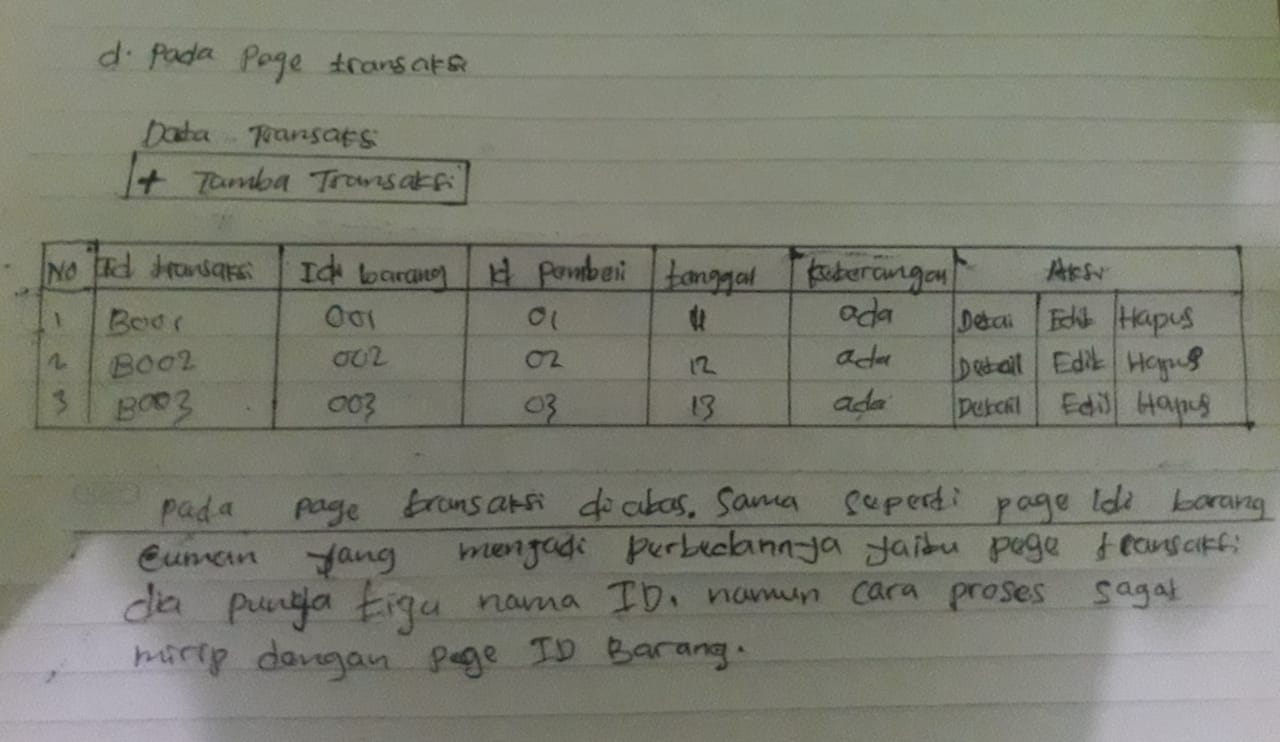 d. Pada Page transaksi
Data Transaksi
+ Tamba Transaksi
No Id transaksi Id barang Id pembeli tanggal keterangan Aksi
1 B001 001 01 11 ada Detai Edit Hapus
2 B002 002 02 12 ada Detail Edit Hapus
3 B003 003 03 13 ada Detail Edit Hapus
pada page transaksi di atas. Sama seperti page Idi barang
cuman yang menjadi perbedannya yaitu page transaksi
dia punya tiga nama ID. namun cara proses sagat
mirip dengan page ID Barang.